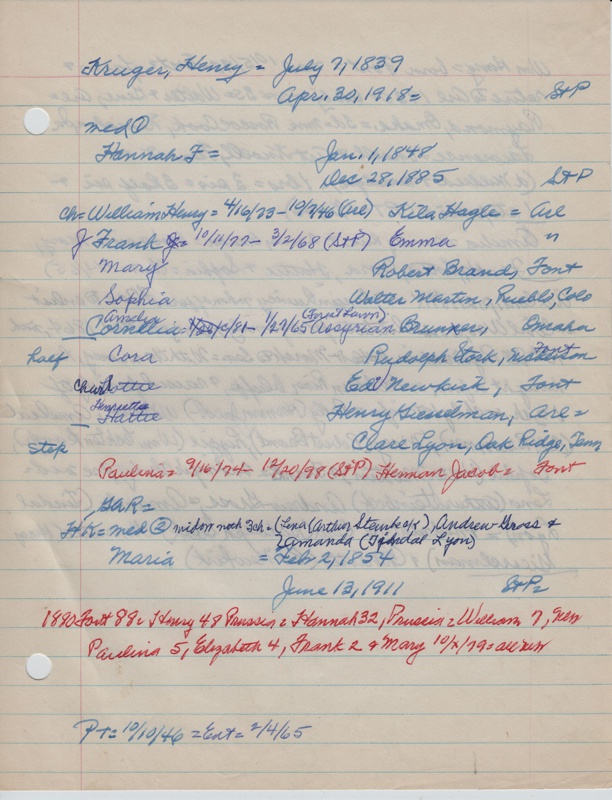 Kruger, Henry = July 7, 1839
Apr. 30, 1918 = St P
med ①
Hannah F = Jan. 1, 1848
Dec 28, 1885 St P
ch = William Henry = 4/16/73 - 10/7/46 (Arl) Killa Hagle = Arl
J Frank J = 10/11/77 - 3/2/68 (StP) Emma "
Mary Robert Brand, Font
Sophia Walter Martin, Pueblo, Colo
Amelia (Forest Lawn)
Cornellia = 81 - 1/27/65 Assyrian Brunner, Omaha
half Cora Rudolph Stork, Nickerson
Font
Charlottie Ed Newkirk, Font
Henrietta
Hattie Henry Giesselman, Arl =
step Clare Lyon, Oak Ridge, Tenn
Paulina = 9/16/74 - 12/20/98 (StP) Herman Jacob = Font
GAR =
HK = med ② widow with 3 ch = (Lena (Arthur Steinke c/x), Andrew Gross &
Amanda ( Lyon)
Maria = Feb 2, 1854
June 13, 1911 St P =
1880 Font 88 = Henry 48 Prussia = Hannah 32, Prussia = William 7, New
Paulina 5, Elizabeth 4, Frank 2 & Mary 10/x/79 = all New
Pt = 10/10/46 = Ent = 2/4/65